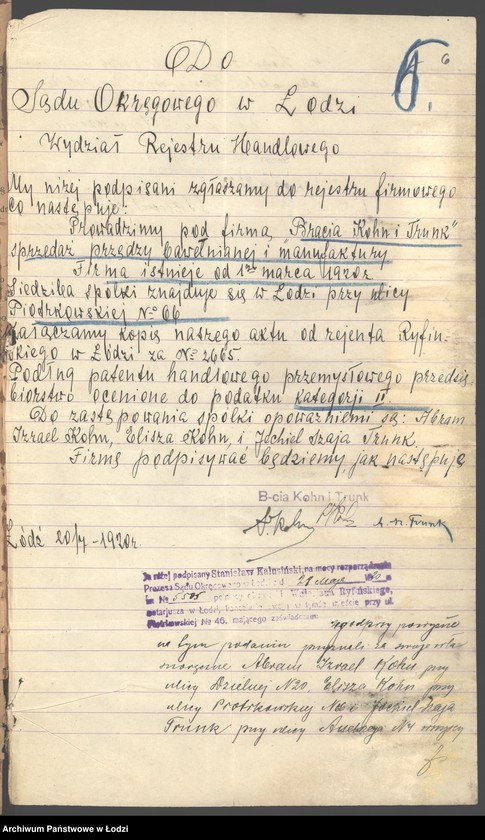 Do
6
6.
Sądu Okręgowego w Łodzi
Wydział Rejestru Handlowego
My niżej podpisani zgłaszamy do rejestru firmowego
co następuje:
Prowadzimy pod firmą „Bracia Kohn i Trunk"
sprzedaż przędzy bawełnianej i manufaktury
Firma istnieje od 1go marca 1920r
Siedziba spółki znajduje się w Łodzi przy ulicy
Piotrkowskiej No 66
Załączamy kopię naszego aktu od rejenta Ryfiń-
skiego w Łodzi za No 2665.
Podług patentu handlowego przemysłowego przedsię
biorstwo ocenione do podatku kategorji II.
Do zastępowania spółki upoważnieni są: Abram
Izrael Kohn, Elisza Kohn, i Jochiel Szaja Trunk.
Firmę podpisywać będziemy jak następuje
B-cia Kohn i Trunk
Łódź 20/4 - 1920r
Ja niżej podpisany Stanisław Kalnsiński, na mocy rozporządzenia
Prezesa Sądu Okręgowego w Łodzi z d. 21 Maja
za № 5505 Ryfińskiego,
notarjusza w Łodzi, przy ul.
Piotrkowskiej № 46, mającego zaświadczam
na tym podaniu za swoje
Abram Izrael Kohn przy
ulicy Dzielnej N20, Elisza Kohn przy
ulicy Piotrkowskiej Jochiel Szaja
Trunk przy ulicy Andrzeja N4
Archiwum Państwowe w Łodzi